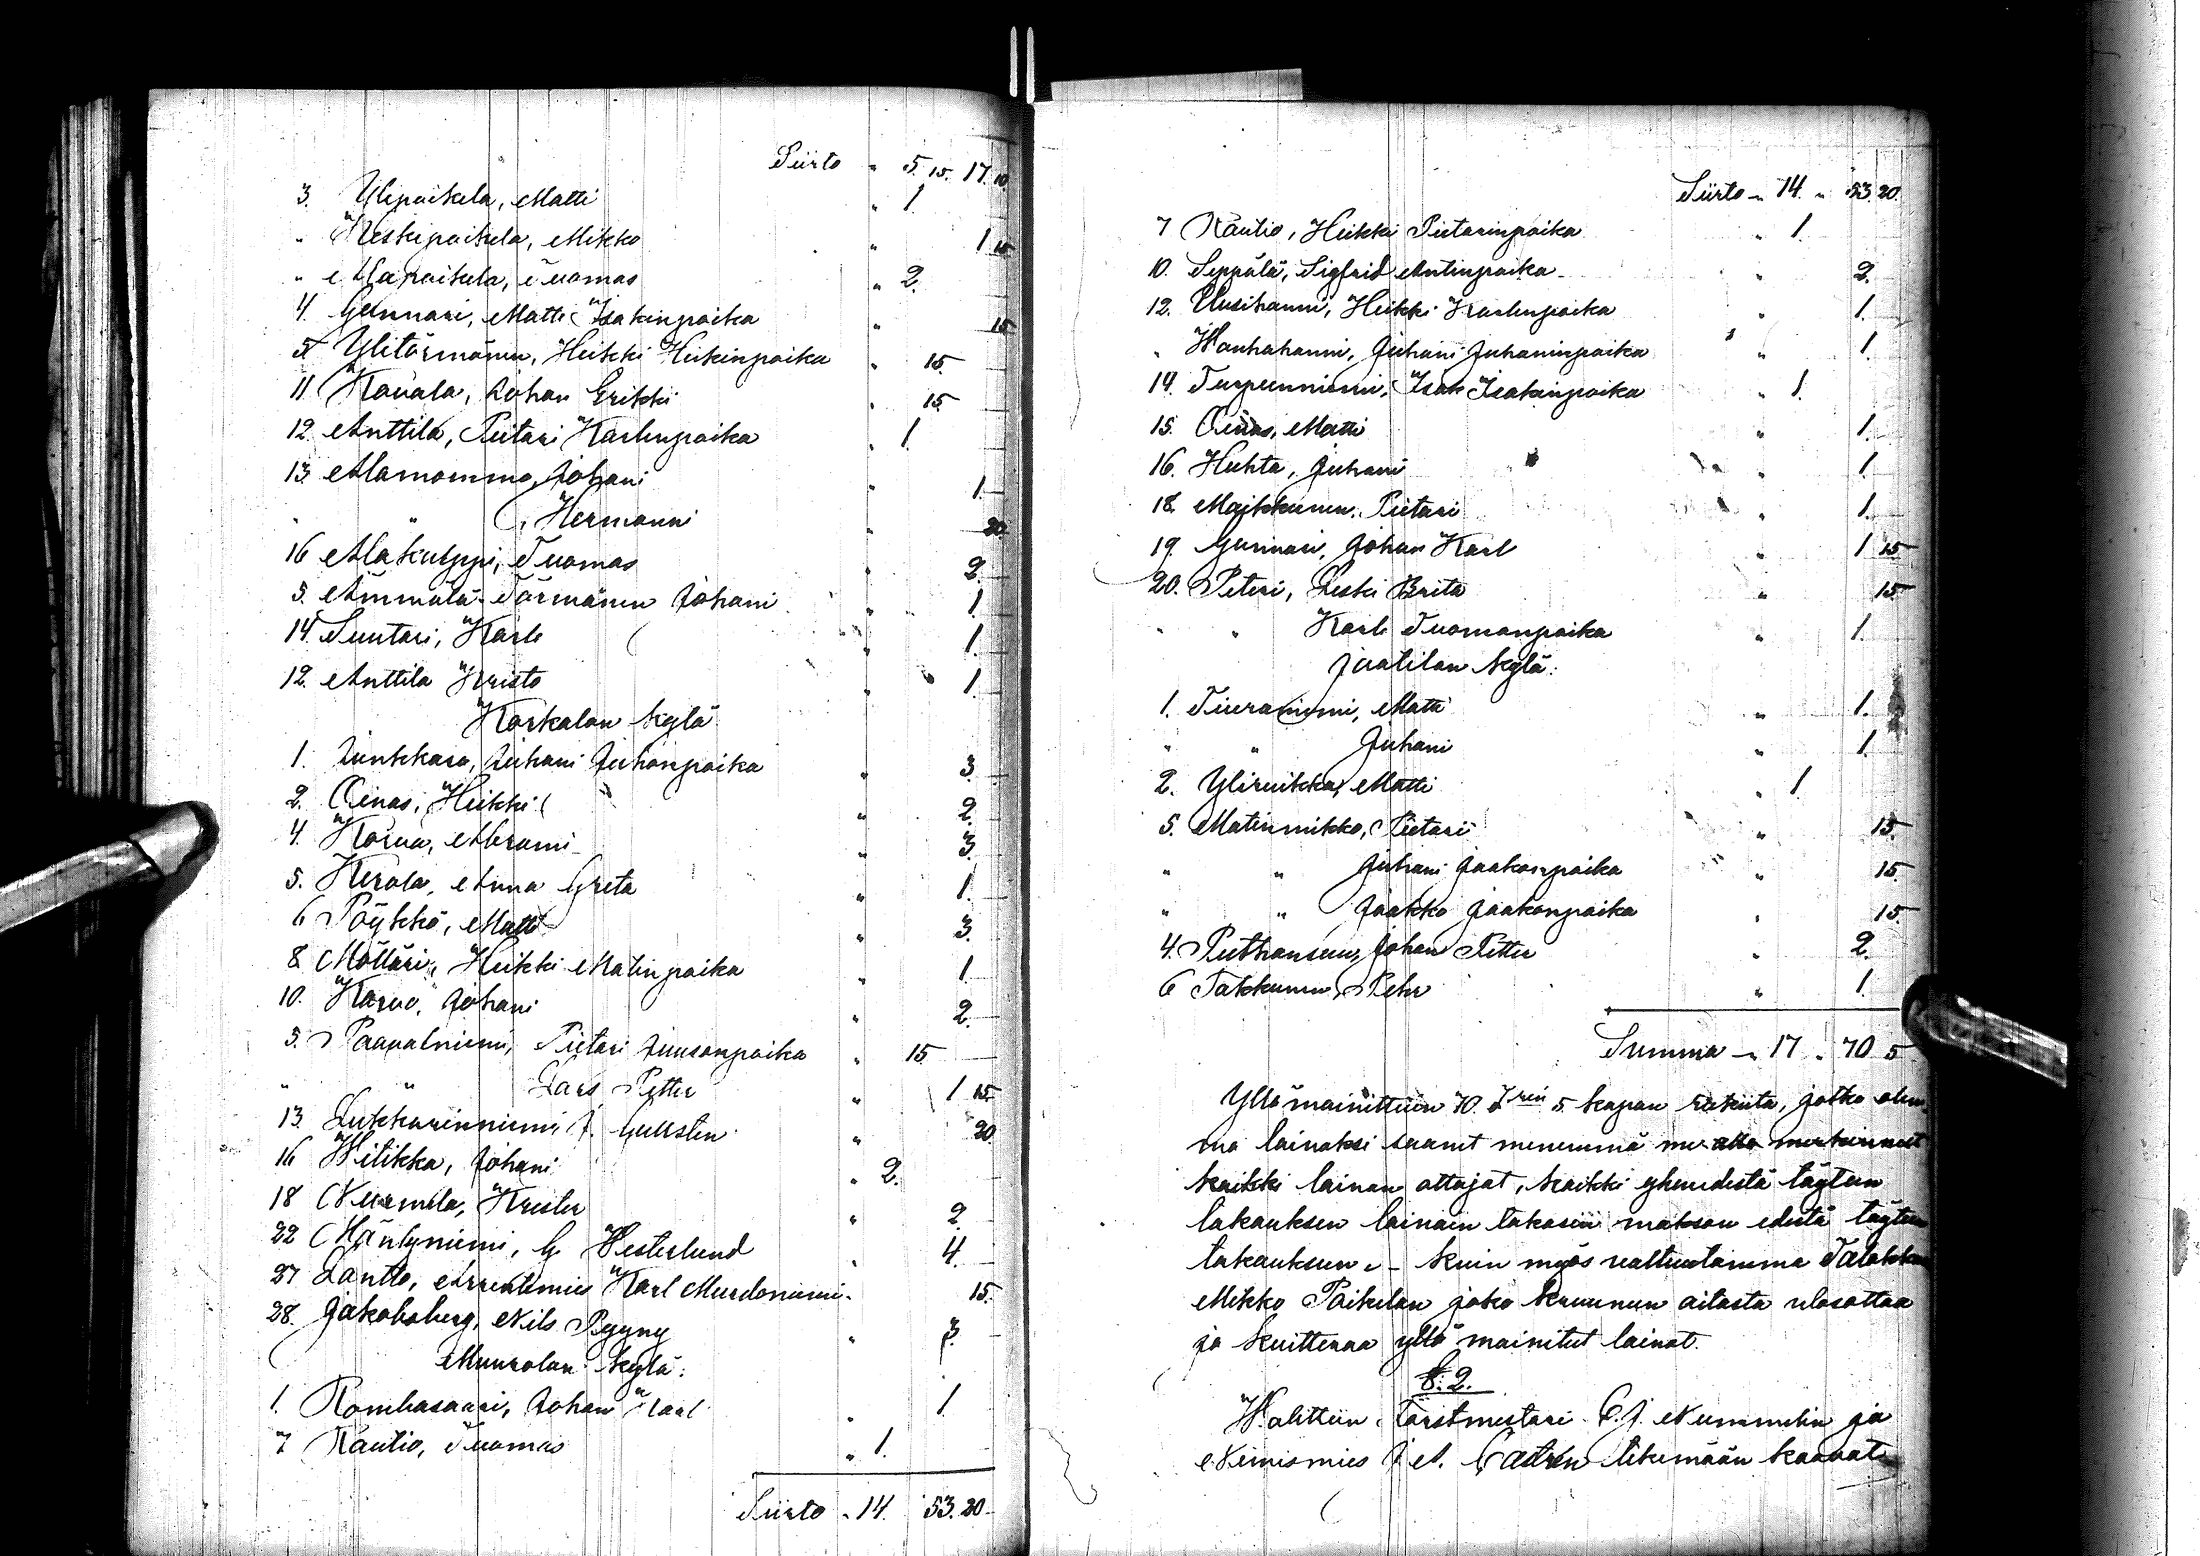 Siirto " 5. 15. 17. 10
3. Ylipaikela, Matti " 1.
" Keskipaikela, Mikko " 1 15
" Alapaikela, Tuomas " 2.
4. Gunnari, Matti Isakinpoika " 15
5 Ylitörmänen, Heikki Heikinpoika " 15
11 Kauala, Johan Erikki " 15
12. Anttila, Pietari Karlinpoika " 1.
13. Alamommo, Johani " 1.
" " Hermanni " 20
16 Alakulppi, Tuomas " 2.
5. Ämmälä-Törmänen Johani " 1
14. Suutari, Karle " 1.
12. Anttila Kristo " 1.
Korkalon kylä
1. Junkkara, Juhani Juhonpoika " 3.
2. Oinas, Heikki " 2.
4. Korva, Abrami " 3.
5. Kerola, Anna Greta " 1.
6 Pöykkö, Matti " 3.
8 Möttäri, Heikki Matinpoika " 1
10. Karvo, Johani " 2.
5. Paavalniemi, Pietari Juusonpoika " 15
" " Lars Petter " 1 15
13. Lukkarinniemi J. Gusten " 20
16 Hitikka, Johani " 2.
18 Nurmela, Krister " 2.
22 Mäntyniemi, G Westerlund " 4.
27 Lantto, Arrentimies Karl Murdoniemi. 15.
28. Jakobsberg, Nils Pyyny " 3.
Muurolan kylä:
1. Romhasaari, Johan Karl " 1.
7 Rautio, Tuomas " 1.
Siirto " 14. 53. 20
Siirto " 14. " 53 20.
7 Rautio, Heikki Pietarinpoika " 1.
10. Seppälä, Sigfrid Antinpoika " 2.
12. Uusihanni, Heikki Karlinpoika " 1.
" Wanhahanni, Juhani Juhaninpoika " 1.
14. Turpeenniemi, Isak Isakinpoika " 1.
15. Oinas, Matti " 1.
16. Huhta, Juhani " 1.
18. Maikkunen, Pietari " 1.
19. Gunnari, Johan Karl " 1 15
20. Peteri, Leski Brita " 15
" " Karle Tuomanpoika " 1.
Jaatilan kylä:
1. Tiuraniemi, Matti " 1.
" " Juhani " 1.
2. Yliruikka, Matti " 1
5. Matinmikko, Pietari " 15.
" " Juhani Jaakonpoika " 15.
" " Jaakko Jaakonpoika " 15
4. Piethansuu, Johan Petter " 2.
6 Takkunen, Pehr " 1.
Summa " 17 " 70 5
Yllämainittuin 70. 5 kapan rukiita, jotka olem
ma lainaksi saanut menemmä me alla
kaikki lainan ottajat, kaikki yhuudestä täyteen
takauksen lainain takasiin makson edestä täyteen
takauksen - kuin myös valtuutamma
Mikko Paikelan joko kruunun aitasta ulosottaa
ja kuitteraa yllä mainitut lainat.
§. 2.
Walittiin Forstmestari C. J. Nummelin ja
Nimismies J. A. Castrén tekemään kaavat